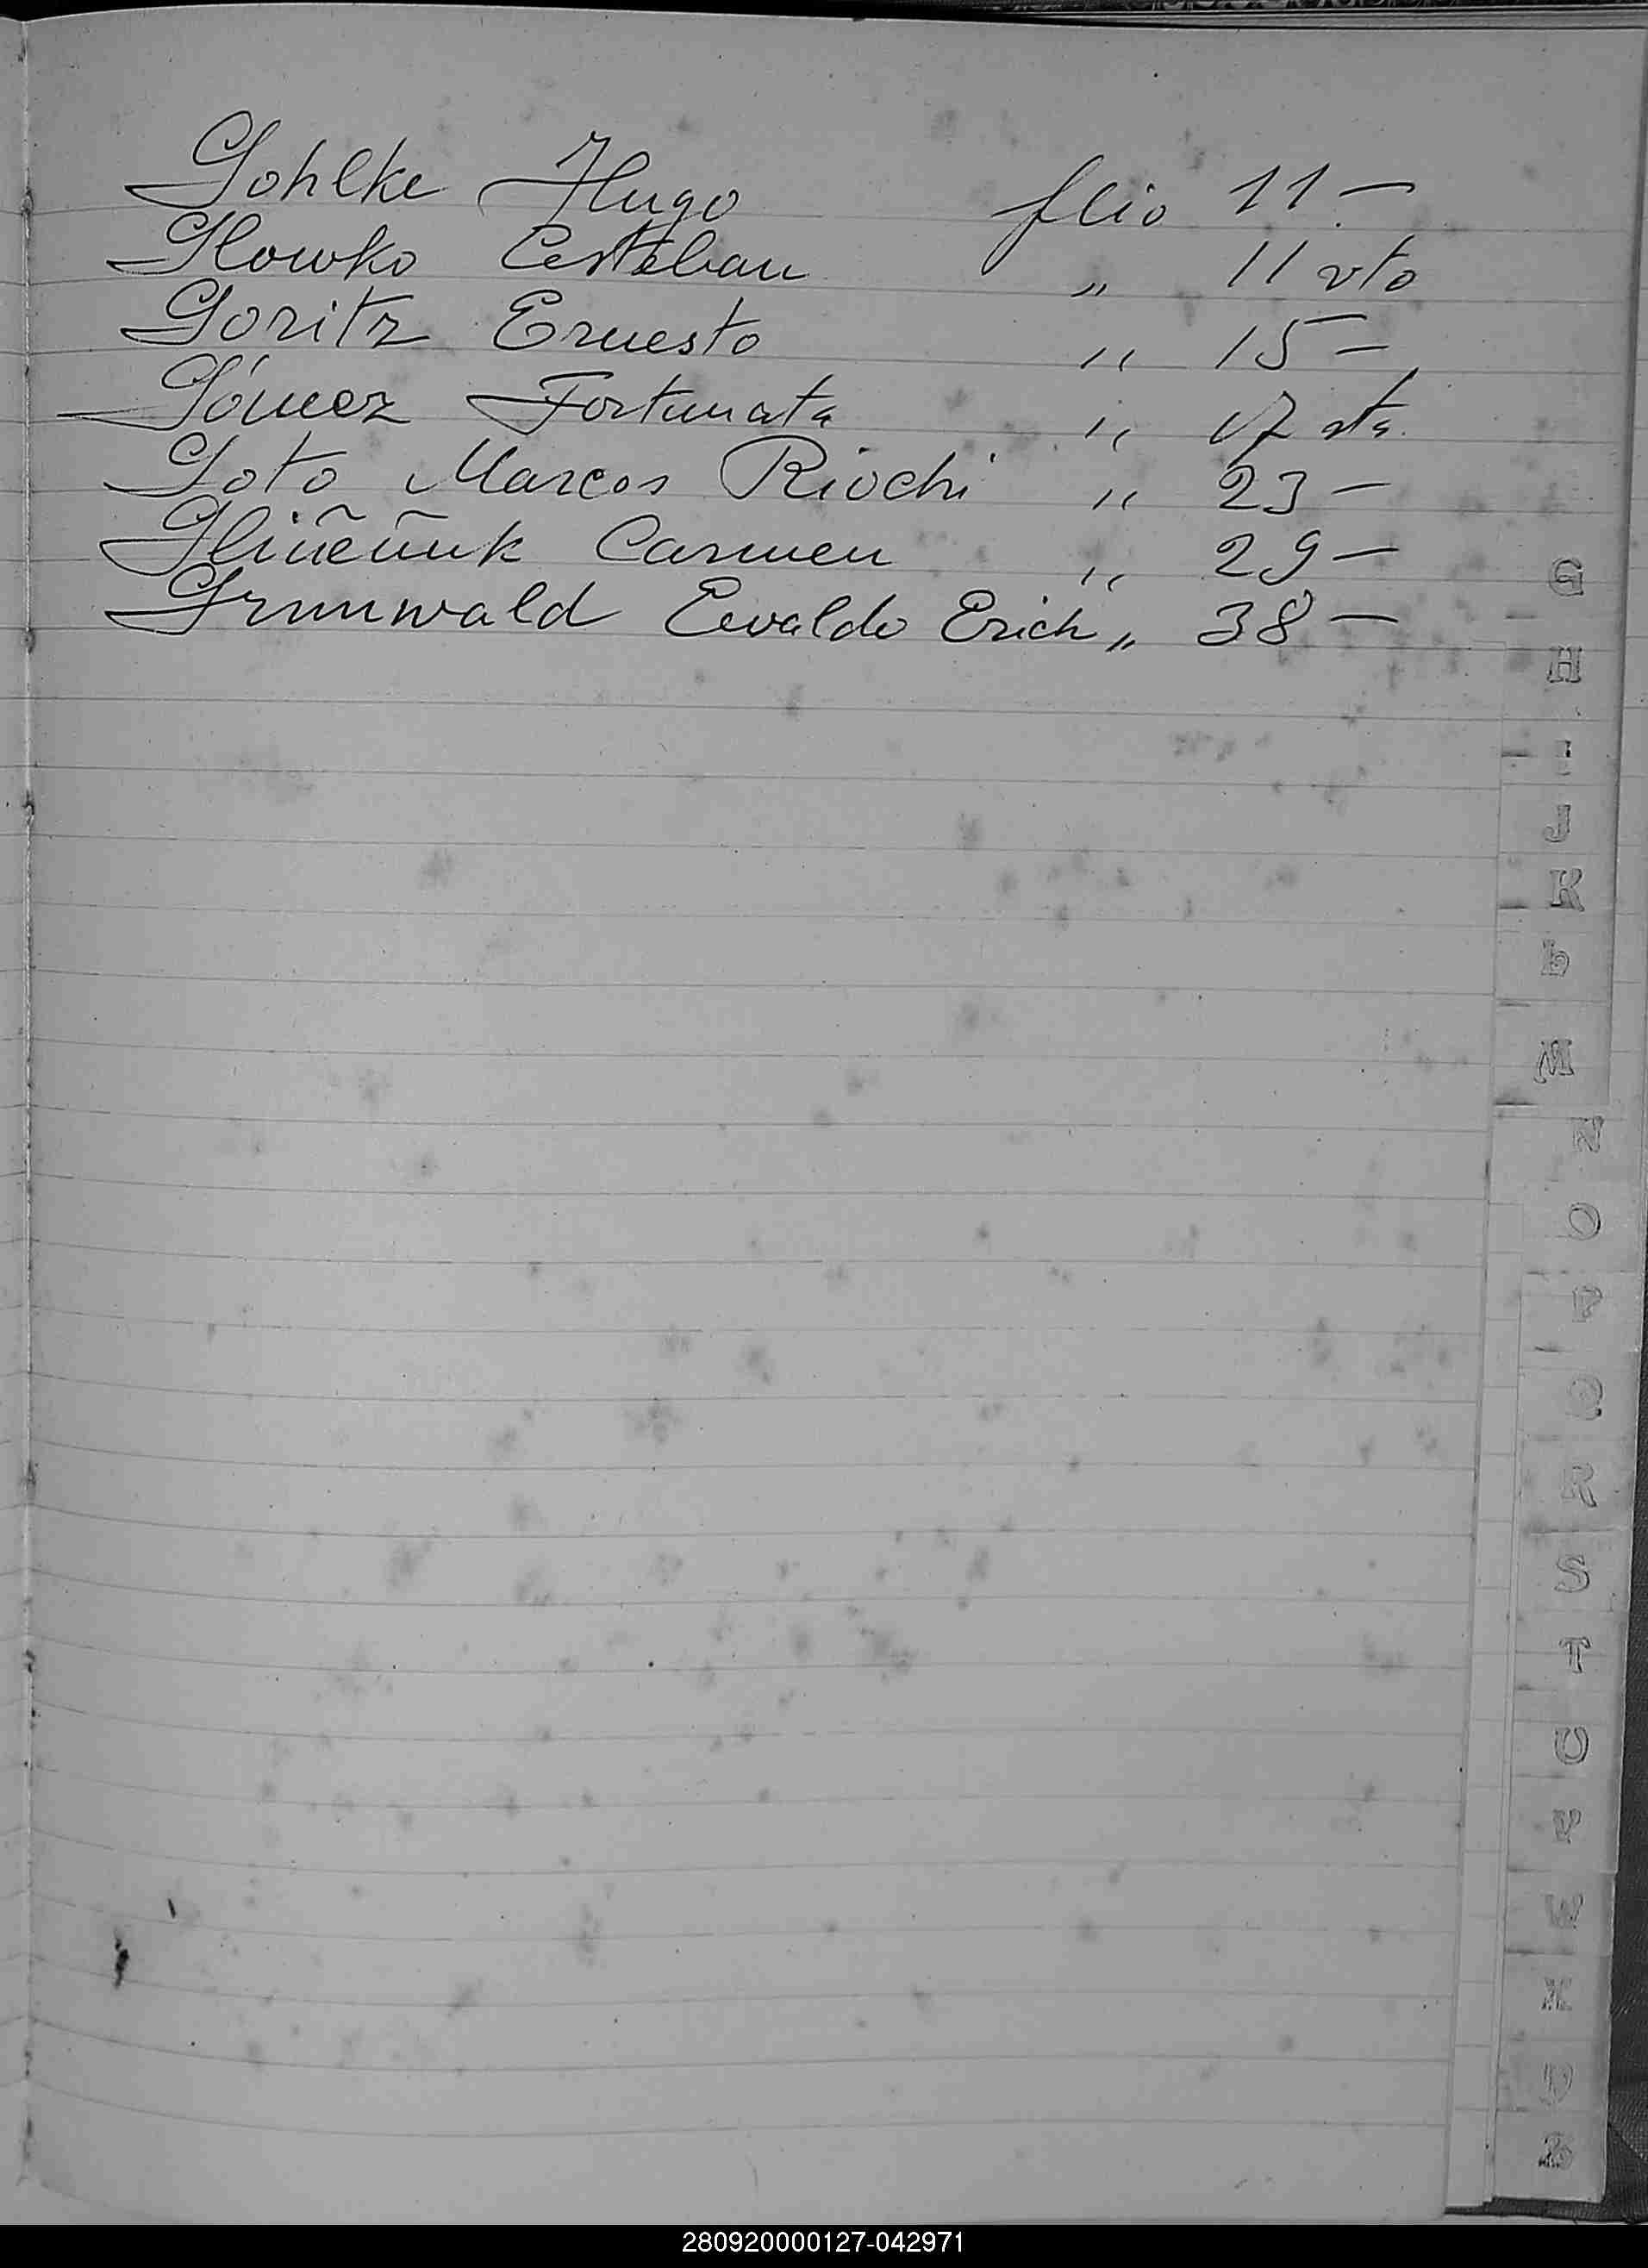 Gohlke Hugo flio 11 —
Glowko Esteban " 11 vto
Goritz Ernesto " 15 —
Gómez Fortunata " 17 vta.
Goto Marcos Riochi " 23 —
Carmen " 29 —
Grunwald Ewaldo Erich " 38 —
G
H
I
J
K
L
M
N
O
P
Q
R
S
T
U
V
W
X
Y
Z
280920000127-042971